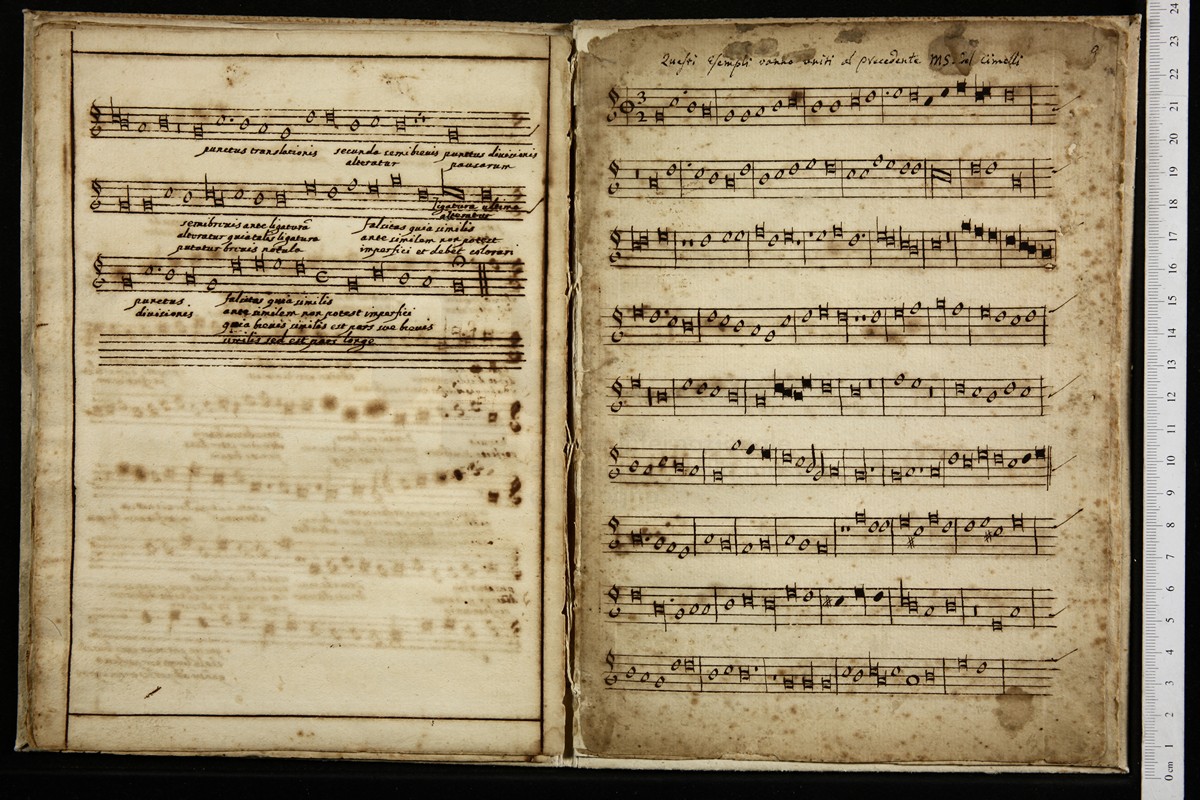 punctus translationis secunda cemibrevis punctus divicionis
alteratur pausarum
ligatura ultima
alteratur
semibrevis ante ligaturã falcitas quia similis
alteratur quia talis ligatura ante similem non potest
putatur brevis notula imperfici et debet colorari
punctus falcitas quia similis
divicionis ante similem non potest imperfici
quia brevis similis est pars sive brevis
similis sed est pars longe
Questi Esempli vanno uniti al precedente MS. del Cimelli
9
3
2
24
23
22
21
20
19
18
17
16
15
14
13
12
11
10
9
8
7
6
5
4
3
2
1
0 cm